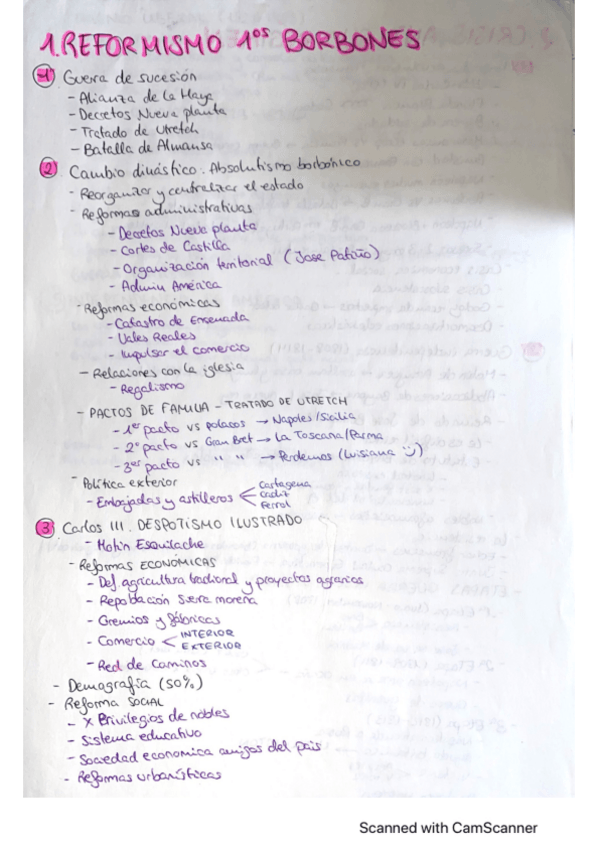 1. REFORMISMO 1os BORBONES
1 Guerra de sucesión
- Alianza de la Haya
- Decretos Nueva planta
- Tratado de Utretch
- Batalla de Almansa
2 Cambio dinástico. Absolutismo borbónico
- Reorganizar y centralizar el estado
- Reformas administrativas
- Decretos Nueva planta
- Cortes de Castilla
- Organización territorial (Jose Patiño)
- Admin América
- Reformas económicas
- Catastro de Ensenada
- Vales Reales
- Impulsar el comercio
- Relaciones con la iglesia
- Regalismo
- PACTOS DE FAMILIA - TRATADO DE UTRETCH
- 1er pacto vs polacos → Napoles/Sicilia
- 2º pacto vs Gran Bret → La Toscana/Parma
- 3er pacto vs " " → Perdemos (Luisiana :))
- Política exterior
- Embajadas y astilleros < Cartagena
Cadiz
Ferrol
3 Carlos III. DESPOTISMO ILUSTRADO
- Motín Esquilache
- Reformas ECONÓMICAS
- Def agricultura tradicional y proyectos agrarios
- Repoblación Sierra morena
- Gremios y fábricas
- Comercio < INTERIOR
EXTERIOR
- Red de Caminos
- Demografía (50%)
- Reforma SOCIAL
- X Privilegios de nobles
- Sistema educativo
- Sociedad economica amigos del país
- Reformas urbanísticas
Scanned with CamScanner